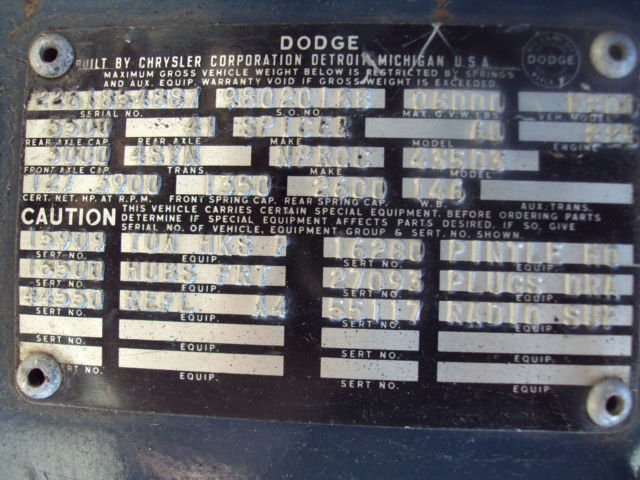 DODGE
BUILT BY CHRYSLER CORPORATION DETROIT, MICHIGAN U.S.A.
MAXIMUM GROSS VEHICLE WEIGHT BELOW IS RESTRICTED BY SPRINGS
AND AUX. EQUIP. WARRANTY VOID IF GROSS WEIGHT IS EXCEEDED.
08000
SERIAL NO. S.O. NO. MAX. G.V.W. LBS. VEH. MODEL
5500 41 SPICER 60 225
REAR AXLE CAP. REAR AXLE MAKE MODEL ENGINE
3000 4SYN NPROC 435D3
FRONT AXLE CAP. TRANS. MAKE MODEL
127 3900 1350 2600 146
CERT. NET. HP. AT R.P.M. FRONT SPRING CAP. REAR SPRING CAP. W.B. AUX. TRANS.
CAUTION THIS VEHICLE CARRIES CERTAIN SPECIAL EQUIPMENT. BEFORE ORDERING PARTS
DETERMINE IF SPECIAL EQUIPMENT AFFECTS PARTS DESIRED. IF SO, GIVE
SERIAL NO. OF VEHICLE, EQUIPMENT GROUP & SERT. NO. SHOWN.
15909 TOW HKS F 16260 PINTLE HO
SERT NO. EQUIP. SERT NO. EQUIP.
16500 HUBS FRT 27093 PLUGS DRA
SERT NO. EQUIP. SERT NO. EQUIP.
44550 REFL A4 55117 RADIO SUP
SERT NO. EQUIP. SERT NO. EQUIP.
SERT NO. EQUIP. SERT NO. EQUIP.
SERT NO. EQUIP. SERT NO. EQUIP.